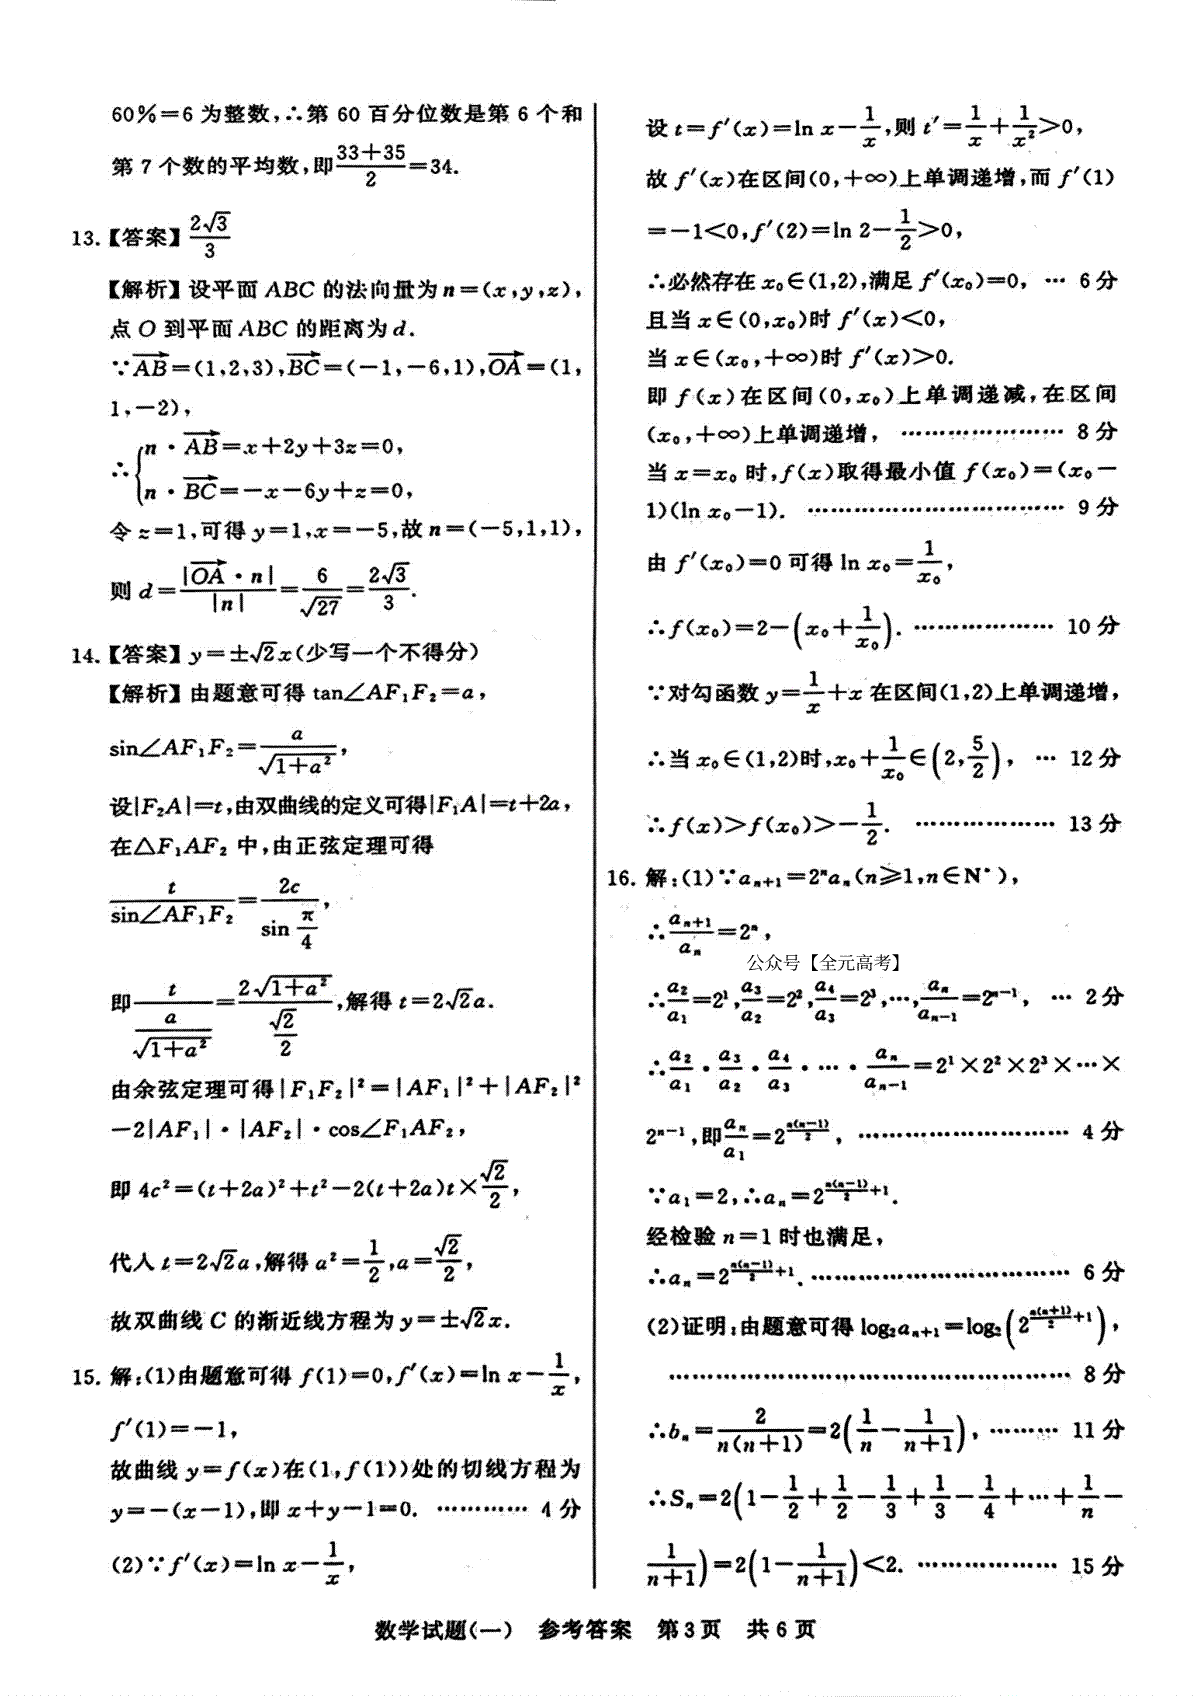 60%=6 为整数,∴第 60 百分位数是第 6 个和
第 7 个数的平均数,即(33+35)/2=34.
13.【答案】2√3/3
【解析】设平面 ABC 的法向量为 n=(x,y,z),
点 O 到平面 ABC 的距离为 d.
∵AB→=(1,2,3),BC→=(-1,-6,1),OA→=(1,
1,-2),
∴{n·AB→=x+2y+3z=0,
n·BC→=-x-6y+z=0,
令 z=1,可得 y=1,x=-5,故 n=(-5,1,1),
则 d=|OA→·n|/|n|=6/√27=2√3/3.
14.【答案】y=±√2x(少写一个不得分)
【解析】由题意可得 tan∠AF₁F₂=a,
sin∠AF₁F₂=a/√(1+a²),
设|F₂A|=t,由双曲线的定义可得|F₁A|=t+2a,
在△F₁AF₂ 中,由正弦定理可得
t/sin∠AF₁F₂=2c/sin(π/4),
即 t/(a/√(1+a²))=2√(1+a²)/(√2/2),解得 t=2√2a.
由余弦定理可得|F₁F₂|²=|AF₁|²+|AF₂|²
-2|AF₁|·|AF₂|·cos∠F₁AF₂,
即 4c²=(t+2a)²+t²-2(t+2a)t×√2/2,
代入 t=2√2a,解得 a²=1/2,a=√2/2,
故双曲线 C 的渐近线方程为 y=±√2x.
15. 解:(1)由题意可得 f(1)=0,f′(x)=ln x-1/x,
f′(1)=-1,
故曲线 y=f(x)在(1,f(1))处的切线方程为
y=-(x-1),即 x+y-1=0. ………… 4 分
(2)∵f′(x)=ln x-1/x,
设 t=f′(x)=ln x-1/x,则 t′=1/x+1/x²>0,
故 f′(x)在区间(0,+∞)上单调递增,而 f′(1)
=-1<0,f′(2)=ln 2-1/2>0,
∴必然存在 x₀∈(1,2),满足 f′(x₀)=0, … 6 分
且当 x∈(0,x₀)时 f′(x)<0,
当 x∈(x₀,+∞)时 f′(x)>0.
即 f(x)在区间(0,x₀)上单调递减,在区间
(x₀,+∞)上单调递增, ………………… 8 分
当 x=x₀ 时,f(x)取得最小值 f(x₀)=(x₀-
1)(ln x₀-1). …………………………… 9 分
由 f′(x₀)=0 可得 ln x₀=1/x₀,
∴f(x₀)=2-(x₀+1/x₀). ……………… 10 分
∵对勾函数 y=1/x+x 在区间(1,2)上单调递增,
∴当 x₀∈(1,2)时,x₀+1/x₀∈(2,5/2), … 12 分
∴f(x)>f(x₀)>-1/2. ……………… 13 分
16. 解:(1)∵aₙ₊₁=2ⁿaₙ(n≥1,n∈N*),
∴aₙ₊₁/aₙ=2ⁿ,
公众号【全元高考】
∴a₂/a₁=2¹,a₃/a₂=2²,a₄/a₃=2³,…,aₙ/aₙ₋₁=2ⁿ⁻¹, … 2 分
∴a₂/a₁·a₃/a₂·a₄/a₃·…·aₙ/aₙ₋₁=2¹×2²×2³×…×
2ⁿ⁻¹,即aₙ/a₁=2^(n(n-1)/2), ……………………… 4 分
∵a₁=2,∴aₙ=2^(n(n-1)/2+1).
经检验 n=1 时也满足,
∴aₙ=2^(n(n-1)/2+1). …………………………… 6 分
(2)证明:由题意可得 log₂aₙ₊₁=log₂(2^(n(n+1)/2+1)),
…………………………………………… 8 分
∴bₙ=2/(n(n+1))=2(1/n-1/(n+1)), ……… 11 分
∴Sₙ=2(1-1/2+1/2-1/3+1/3-1/4+…+1/n-
1/(n+1))=2(1-1/(n+1))<2. ……………… 15 分
数学试题(一) 参考答案 第 3 页 共 6 页